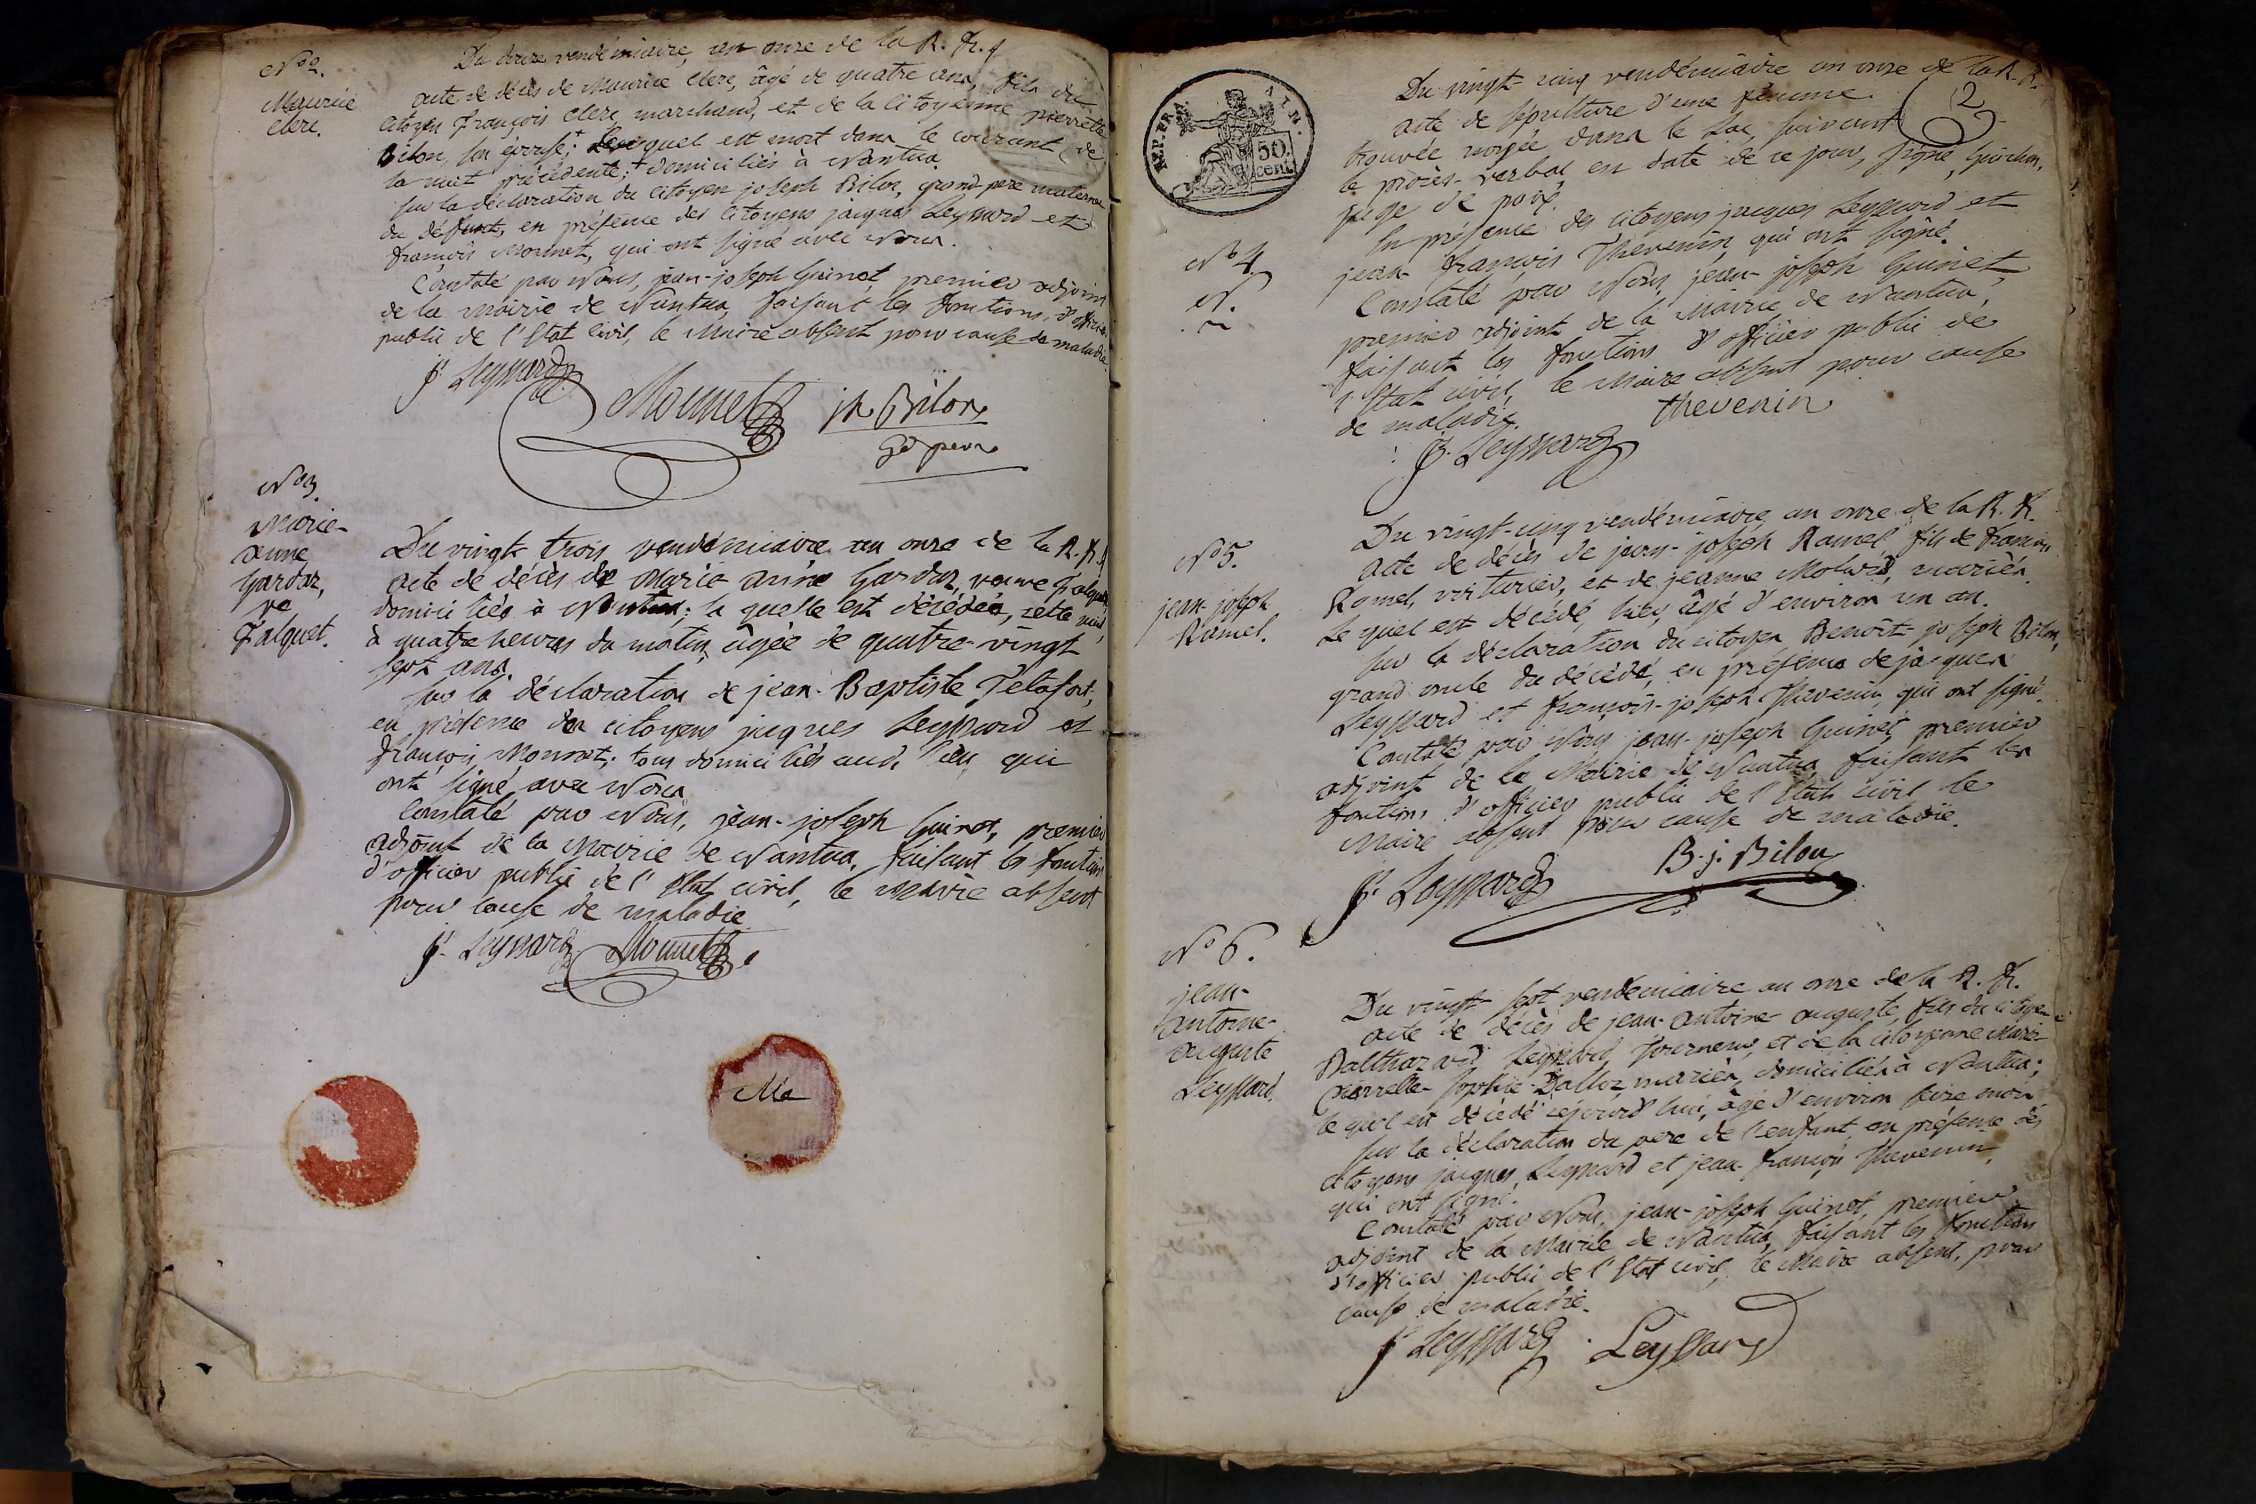 N.° 2.
Maurice
Clerc.
Du douze vendémiaire, an onze de la R. fr.
acte de décès de Maurice Clerc, âgé de quatre ans, fils du
Citoyen François Clerc, marchand, et de la Citoyenne pierrette
Bilon, son épouse; + Lequel est mort dans le courant de
la nuit précédente; + domiciliés à Nantua
Sur la déclaration du Citoyen joseph Bilon, grand-pere maternel
du défunt, en présence des Citoyens jacques Leyssard et
françois Monnet, qui ont signé avec Nous.
Constaté par Nous, jean-joseph Guinet, premier adjoint
de la Mairie de Nantua, faisant les fonctions d'officier
public de l'Etat Civil, le Maire absent pour cause de maladie.
Js. Leyssard Monnet jh Bilon
gd pere
N.° 3.
Marie-
anne
Gardaz,
ve
Falquet.
Du vingt-trois vendémiaire an onze de la R. fr.
acte de décès de Marie anne Gardaz, veuve Falquet,
domiciliée à Nantua; la quelle est décédée, cette nuit,
à quatre heures du matin, âgée de quatre-vingt
sept ans
Sur la déclaration de jean-Baptiste
en présence des citoyens jacques Leyssard et
François Monnet; tous domiciliés aud. lieu, qui
ont signé avec Nous
Constaté par Nous, jean-joseph Guinet, premier
adjoint de la Mairie de Nantua, faisant les fonctions
d'officier public de l'Etat civil, le Maire absent
pour cause de maladie
Js. Leyssard Monnet
Ma
REP. FRA.
50
cent.
2
N.° 4.
N.
Du vingt-cinq vendémiaire an onze de la R. fr.
acte de sépulture d'une femme
trouvée noyée dans le Lac, suivant
le procès-verbal en date de ce jour, signé,
juge de paix.
En présence des citoyens jacques Leyssard et
jean-françois Thevenin, qui ont signé.
Constaté par Nous, jean-joseph Guinet,
premier adjoint de la Mairie de Nantua,
faisant les fonctions d'officier public de
l'Etat civil, le Maire absent pour cause
de maladie.
Js. Leyssard thevenin
N.° 5.
jean-joseph
Ramel.
Du vingt-cinq vendémiaire an onze de la R. fr.
acte de décès de jean-joseph Ramel, fils de François
Ramel, voiturier, et de jeanne mariés.
Le quel est décédé, hier, âgé d'environ un an.
Sur la déclaration du citoyen Benoît-joseph Bilon,
grand oncle du décédé, en présence de jacques
Leyssard et françois-joseph Thevenin, qui ont signé.
Constaté par Nous jean-joseph Guinet, premier
adjoint de la Mairie de Nantua, faisant les
fonctions d'officier public de l'Etat civil le
Maire absent pour cause de maladie.
Js. Leyssard B. j. Bilon
N.° 6.
jean-
antoine-
auguste
Leyssard.
Du vingt-sept vendémiaire an onze de la R. fr.
acte de décès de jean-antoine auguste, fils du citoyen
Balthazard Leyssard, Tourneur, et de la citoyenne Marie-
pierrette-Sophie Dalloz, mariés, domiciliés à Nantua;
le quel est décédé cejourd'hui, âgé d'environ seize mois
Sur la déclaration du pere de l'enfant, en présence des
citoyens jacques Leyssard et jean-françois Thevenin,
qui ont signé.
Constaté par Nous, jean-joseph Guinet, premier
adjoint de la Mairie de Nantua, faisant les fonctions
d'officier public de l'Etat civil, le Maire absent, pour
cause de maladie.
Js Leyssard Leyssard